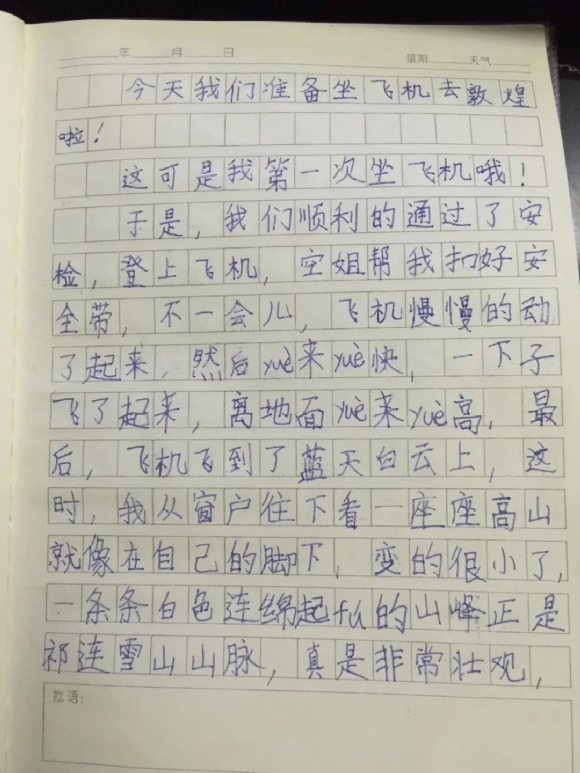 年 月 日 星期 天气
今天我们准备坐飞机去敦煌
啦！
这可是我第一次坐飞机哦！
于是，我们顺利的通过了安
检，登上飞机，空姐帮我扣好安
全带，不一会儿，飞机慢慢的动
了起来，然后yuè来yuè快，一下子
飞了起来，离地面yuè来yuè高，最
后，飞机飞到了蓝天白云上，这
时，我从窗户往下看一座座高山
就像在自己的脚下，变的很小了，
一条条白色连绵起fú的山峰正是
祁连雪山山脉，真是非常壮观，
批语：